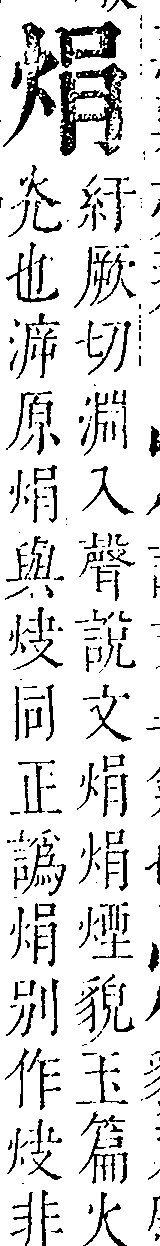 焆
紆厥切淵入聲說文焆焆煙貌玉篇火
光也泲原焆與炦同正譌焆別作炦非